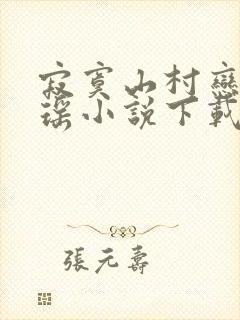 寂寞山村戀
瑤小說下載
張元壽